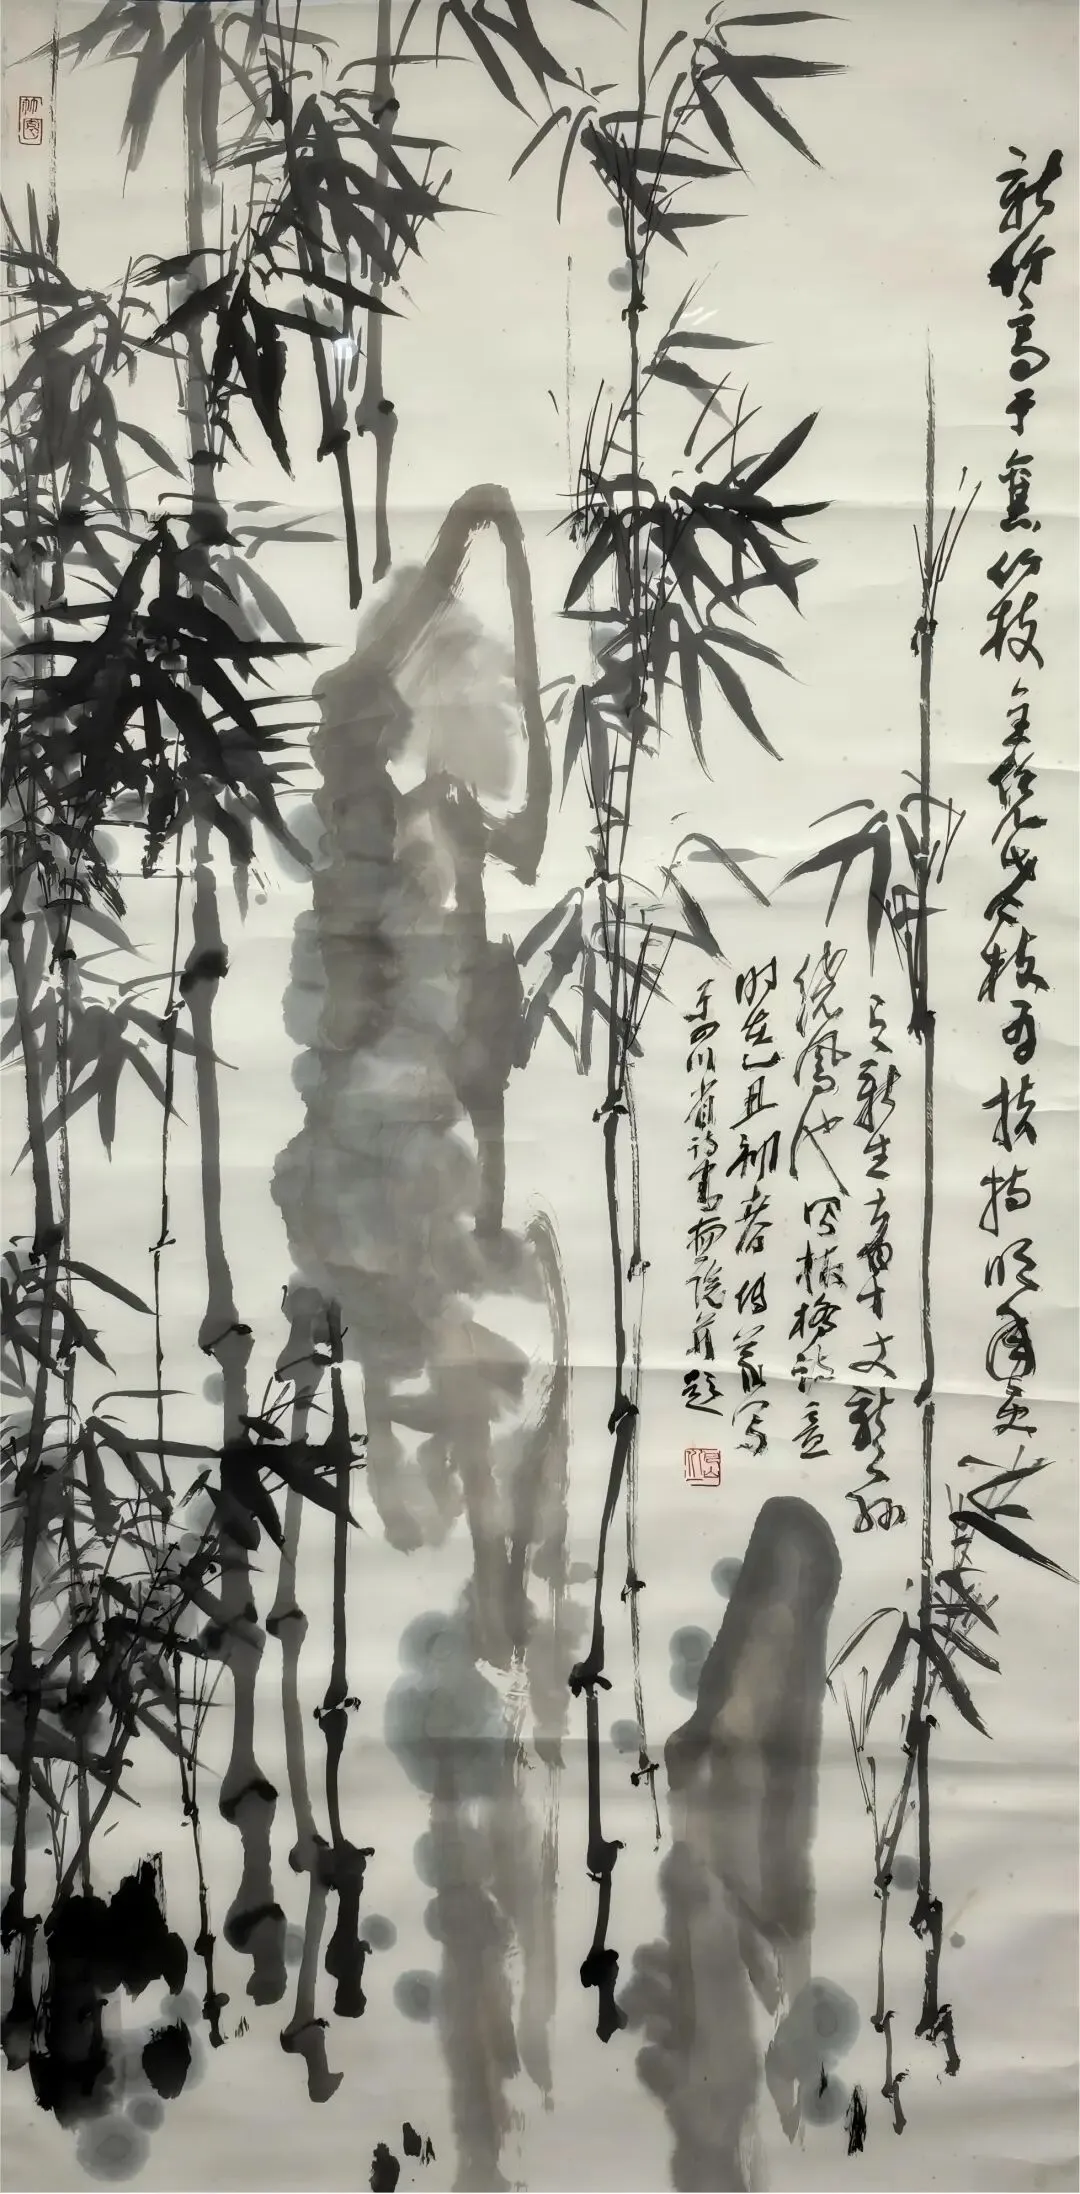 新竹高于舊竹枝全凭老枝为扶持明年更
有新生者十丈龙孙
绕凤池写板桥诗意
时在乙丑初春写
于四川省诗书画院并题